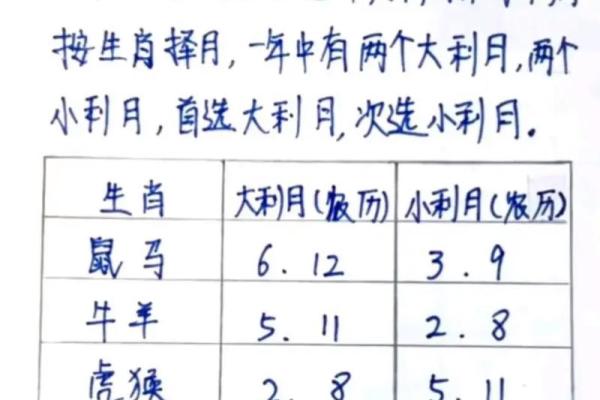 按生肖择月,一年中有两个大利月,两个
小利月,首选大利月,次选小利月。
生肖 大利月(农历) 小利月(农历)
鼠马 6.12 3.9
牛羊 5.11 2.8
虎猴 2.8 5.11